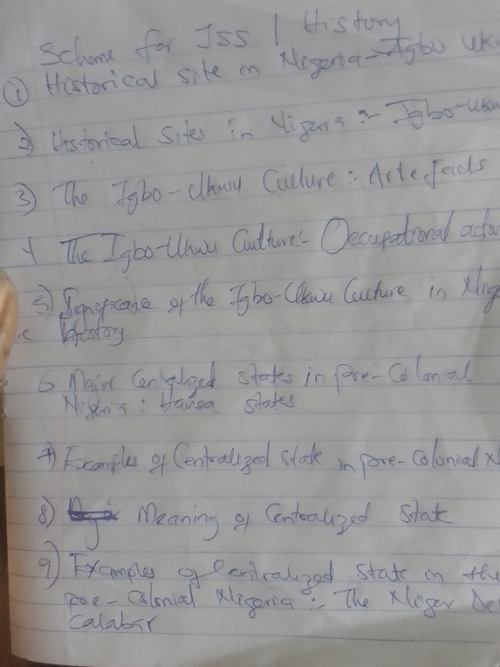 Scheme for JSS 1 History
① Historical site in Nigeria - Igbo Uku
2) Historical Sites in Nigeria :- Igbo-Uku
3) The Igbo-Ukwu Culture :- Artefacts
4 The Igbo-Ukwu Culture :- Occupational
5) Significance of the Igbo-Ukwu Culture in
History
6 Major Centralized states in pre-Colonial
Nigeria : Hausa states
7) Examples of Centralized State in pre-Colonial
8) Meaning of Centralized State
9) Examples of Centralized State in the
pre-Colonial Nigeria :- The Niger De
Calabar